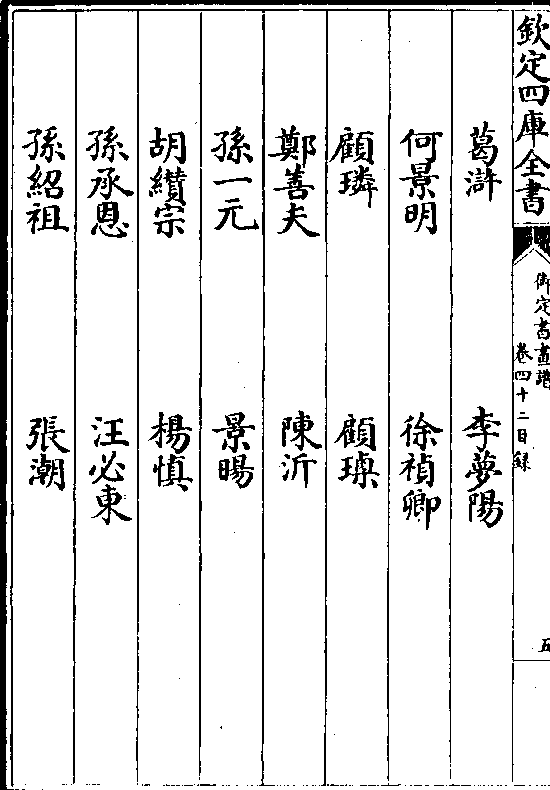 欽定四庫全書
御定書畫譜
卷四十二目錄
五
葛澣 李夢陽
何景明 徐禎卿
顧璘 顧瑮
鄭善夫 陳沂
孫一元 景暘
胡纘宗 楊慎
孫承恩 汪必東
孫紹祖 張潮